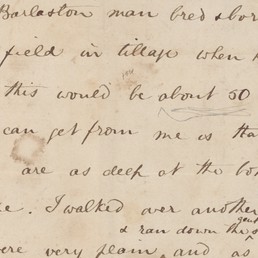 Barlaston man bred & bor
field in tillage when h
this would be about 50
can get from me is tha
are as deep at the bo
e. I walked over anothe
& ran down the s
ere very plain and as